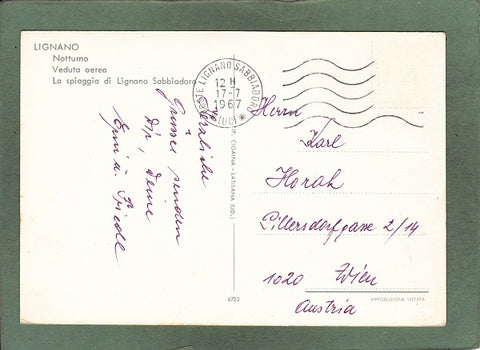 LIGNANO
Notturno
Veduta aerea
La spiaggia di Lignano Sabbiadoro
LIGNANO SABBIADORO
12 H
17-7
1967
(UD)
Herzliche
Grüsse senden
Dir, Deine
Erni u. Friedl
- LATISANA (UD.)
6723
Herrn
Karl
Horak
Pillersdorfgasse 2/14
1020 Wien
Austria
RIPRODUZIONE VIETATA